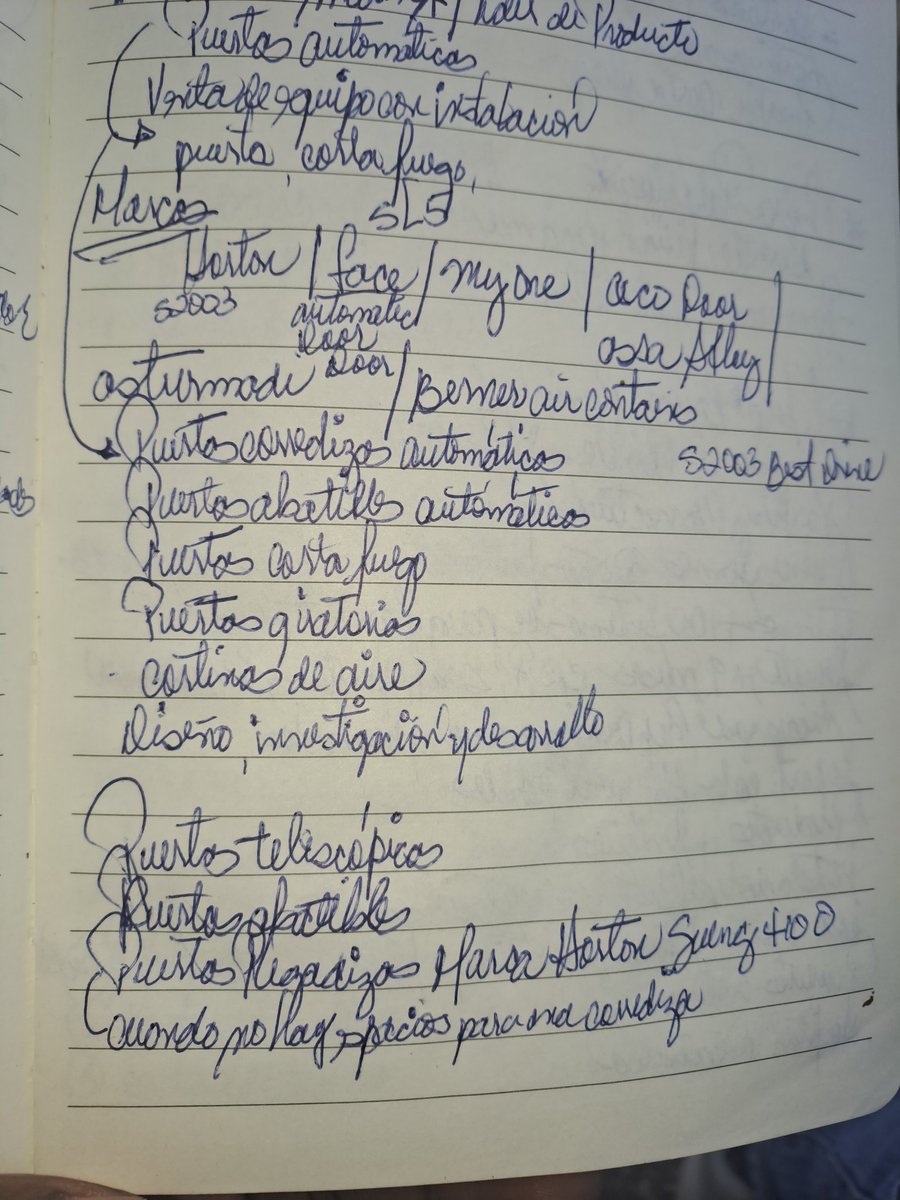 de Producto
Puertas automáticas
Venta de equipo con instalación
puerta, corta fuego,
Marcas SL5
Horton / face / My One / ceco Door
S2003 automatic Door assa
Door / Berner air
Puertas corredizas automáticas S2003 Best
Puertas abatibles automáticas
Puertas corta fuego
Puertas giratorias
cortinas de aire
Diseño, investigación y desarrollo
Puertas telescópicas
Puertas abatibles
Puertas Plegadizas Marca Horton 4100
cuando no hay espacios para una corrediza